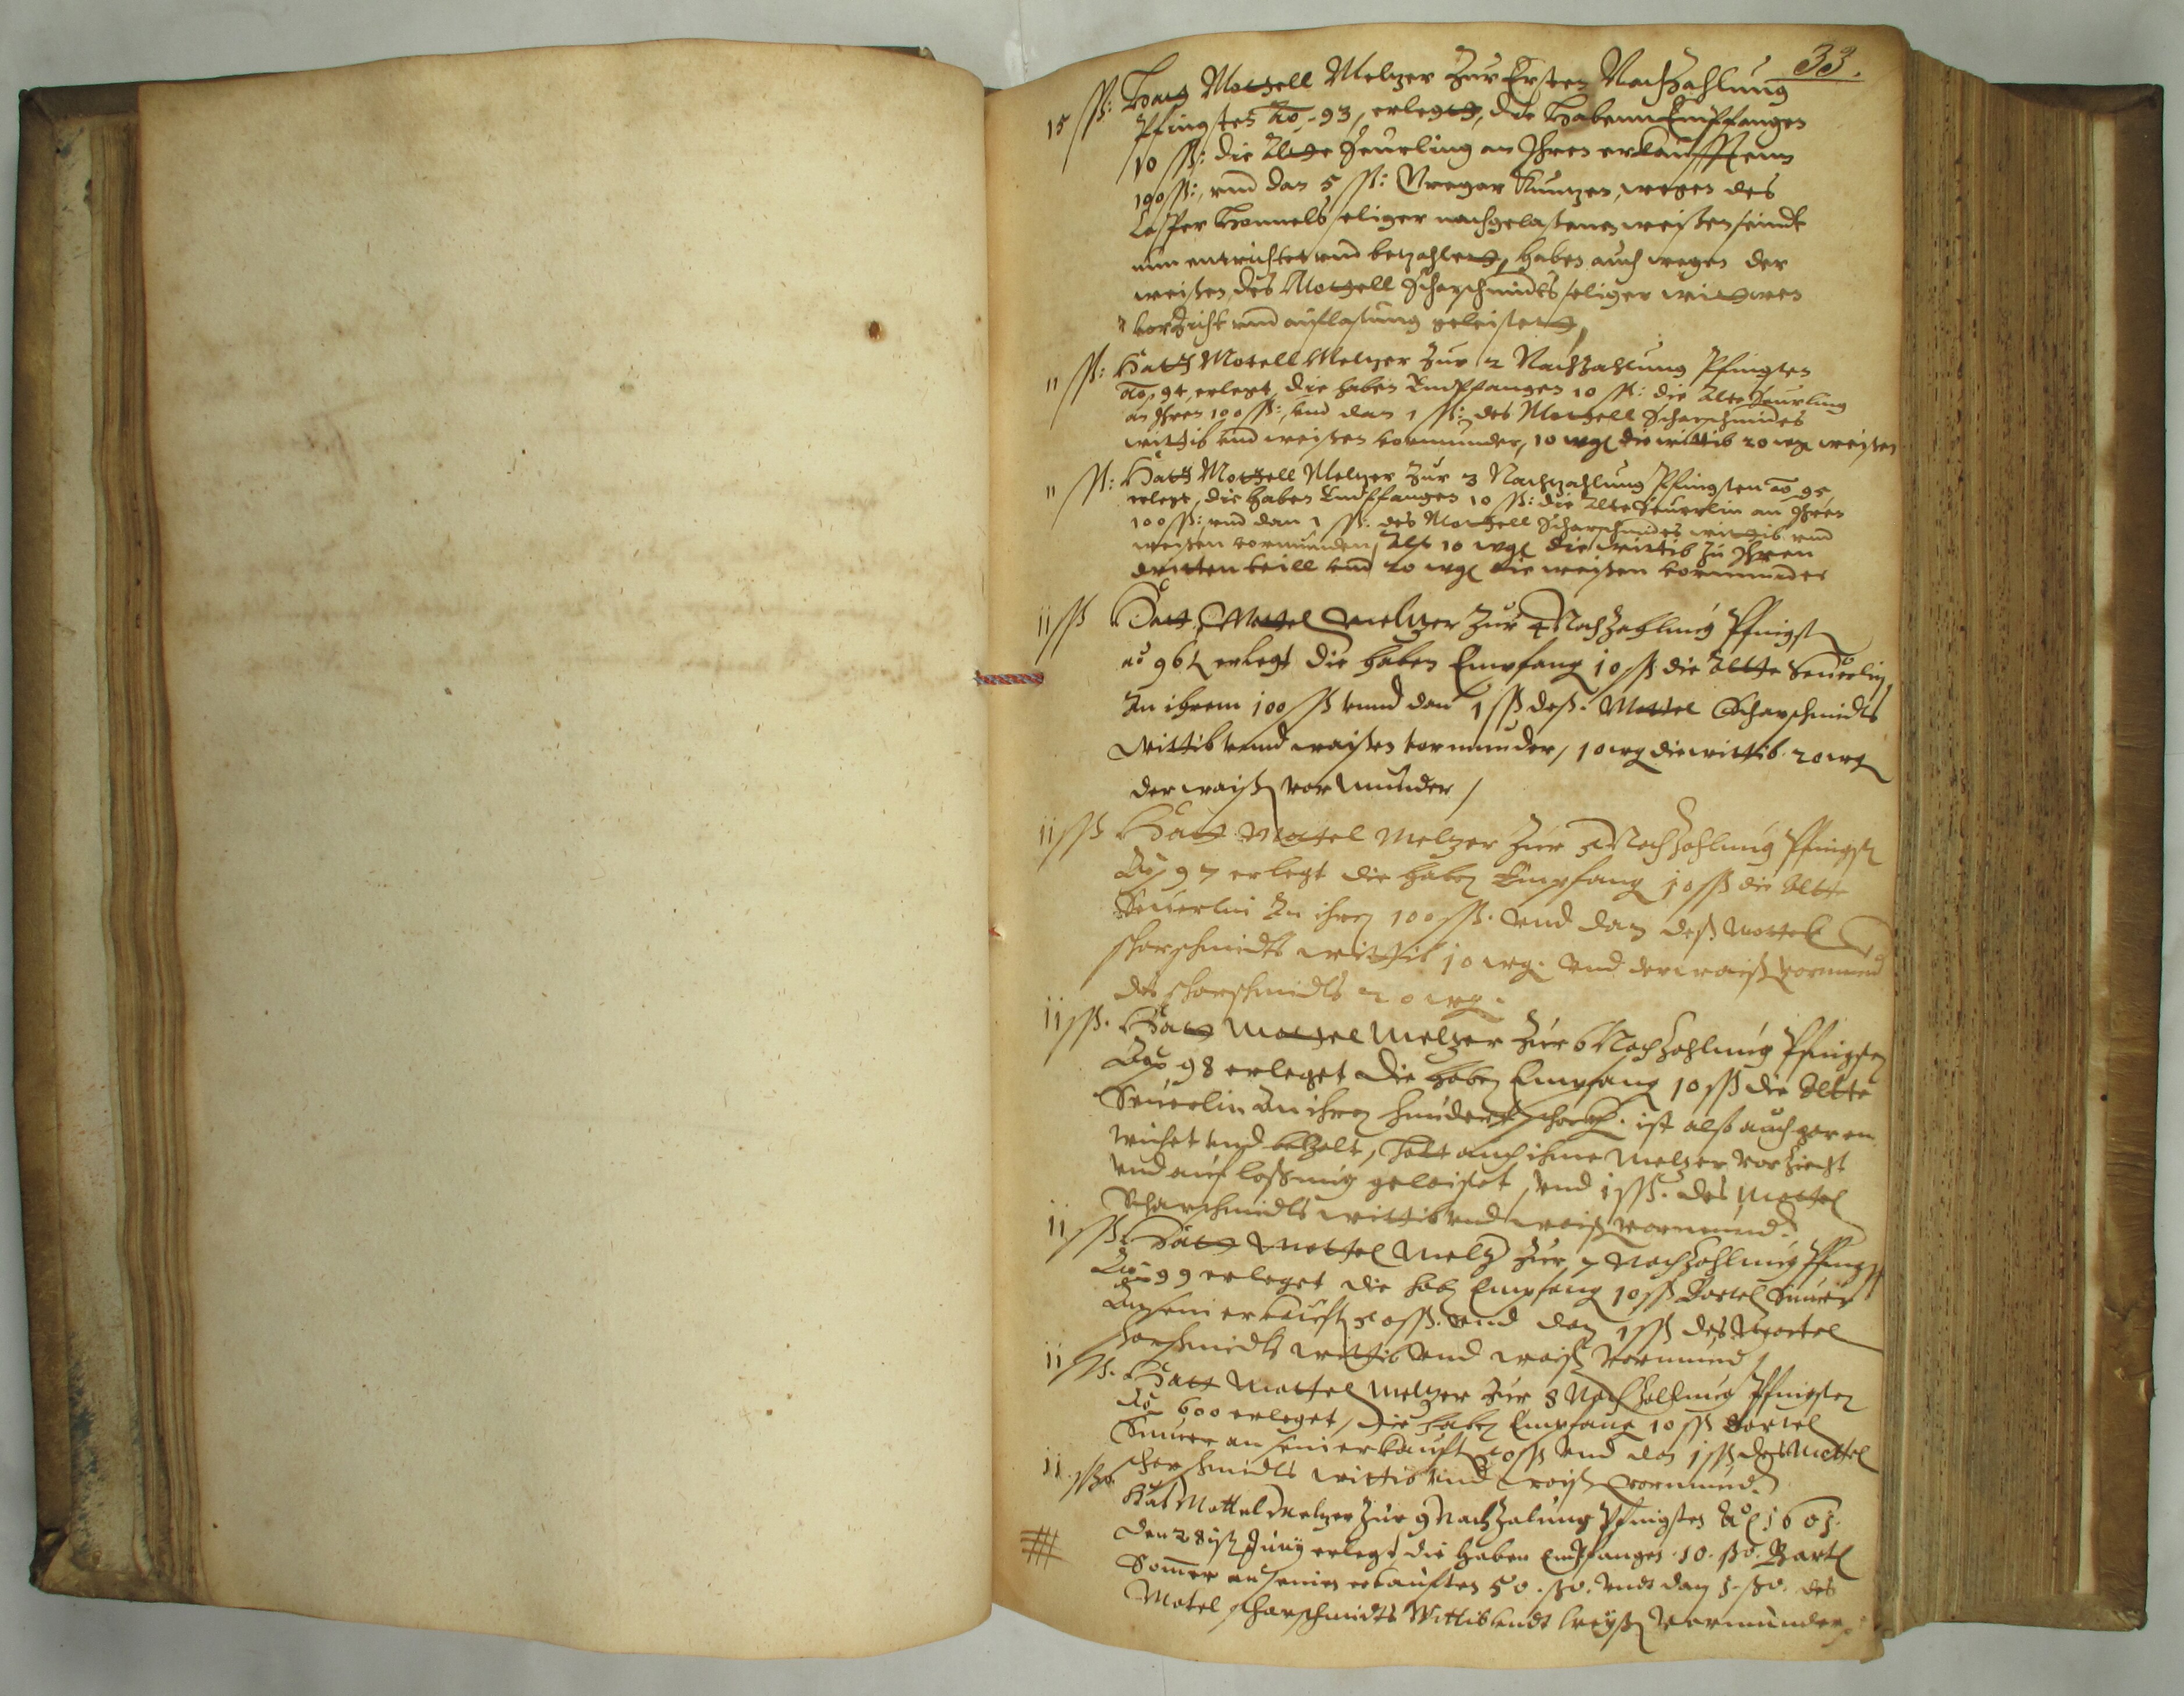 33.
15 ß: Hatt Mottell Meltzer Zur Ersten Nachzahlung
Pfingsten Ao. 93, erlegtt, die Habenn Empffangen
10 ß: die Altte Seurling an Ihren erkaufften
100 ß:, vnd dan 5 ß: Gregor wegen des
seliger nachgelaßenen weißen seindt
nun entrichtet vnd betzahlett, haben auch wegen der
weißen, des Mottell Scharschmidts seliger wittwen
vorZicht vnd aufflaßung geleistett,
11 ß: Hatt Motell Meltzer Zur 2 Nachzahlung Pfingsten
Ao. 94, erlegt, die haben Empffangen 10 ß: die Alte Seurling
an Ihren 100 ß:, vnd dan 1 ß: des Mottell Scharschmides
wittib vnd weißen vormunder, 10 wgl die wittib 20 wgl weißen
11 ß: Hatt Mottell Meltzer Zur 3 Nachzahlung Pfingsten ao 95
erlegt, die haben Empffangen 10 ß: die Alte Seuerlin an Ihren
100 ß:, vnd dan 1 ß: des Mottell Scharschmides wittib vnd
weißen vormunden, Alß 10 wgl die wittib zu Ihren
dritten teill vnd 20 wgl die weißen vormunder
11 ß Hatt Mottel Meltzer Zur 4 Nachzahlung Pfingst
ao 96 erlegt die haben Empfang 10 ß die Altte Seuerlin
An ihrem 100 ß vnnd dan 1 ß deß Mottel Scharschmidts
Wittib vnnd waißen vormunder, 10 wg die wittib 20 wg
der waiß vormunder /
11 ß Hatt Mottel Meltzer Zur 5 Nachzahlung Pfingst
Ao 97 erlegt die haben Empfang 10 ß die Altte
Seuerlin An ihren 100 ß. vnd dan deß Mottel
scharschmidts wittib 10 wg. vnd der waiß vormund
des scharschmidts 20 wg.
11 ß. Hatt Mottel Meltzer Zur 6 Nachzahlung Pfingsten
Ao 98 erleget die haben Empfang 10 ß die Altte
Seuerlin An ihren hundert schock. ist also auch gar en
richt vnd betzalt, hatt auch ihme Meltzer vorziecht
vnd aufflossung geleistet, vnd 1 ß. des Mottel
Scharschmidts wittib vnd waiß vormund.
11 ß. Hatt Mottel Meltz Zur 7 Nachzahlung Pfingst
Ao 99 erleget die haben Empfang 10 ß Bartel
An sein erkauft 50 ß. vnd dan 1 ß des Mottel
scharschmidts wittib vnd waiß vormund /
11 ß. Hatt Mottel Meltzer Zur 8 Nachzallung Pfingsten
Ao 600 erleget, die haben Empfang 10 ß Bartel
an sein erkauft 50 ß vnd dan 1 ß des Mottel
scharschmidts wittib vnd waiß vormund.
11 ßo Hat Mottel Meltzer Zur 9 Nachzalung Pfingsten Ao 1601.
den 28 ist Juny erlegt, die haben Empfangen 10. ßo. Bartl
Sommer an seinen erkauften 50. ßo. vndt dan 1. ßo. des
Motel scharschmidts Wittib vndt weyßen Vormunder.